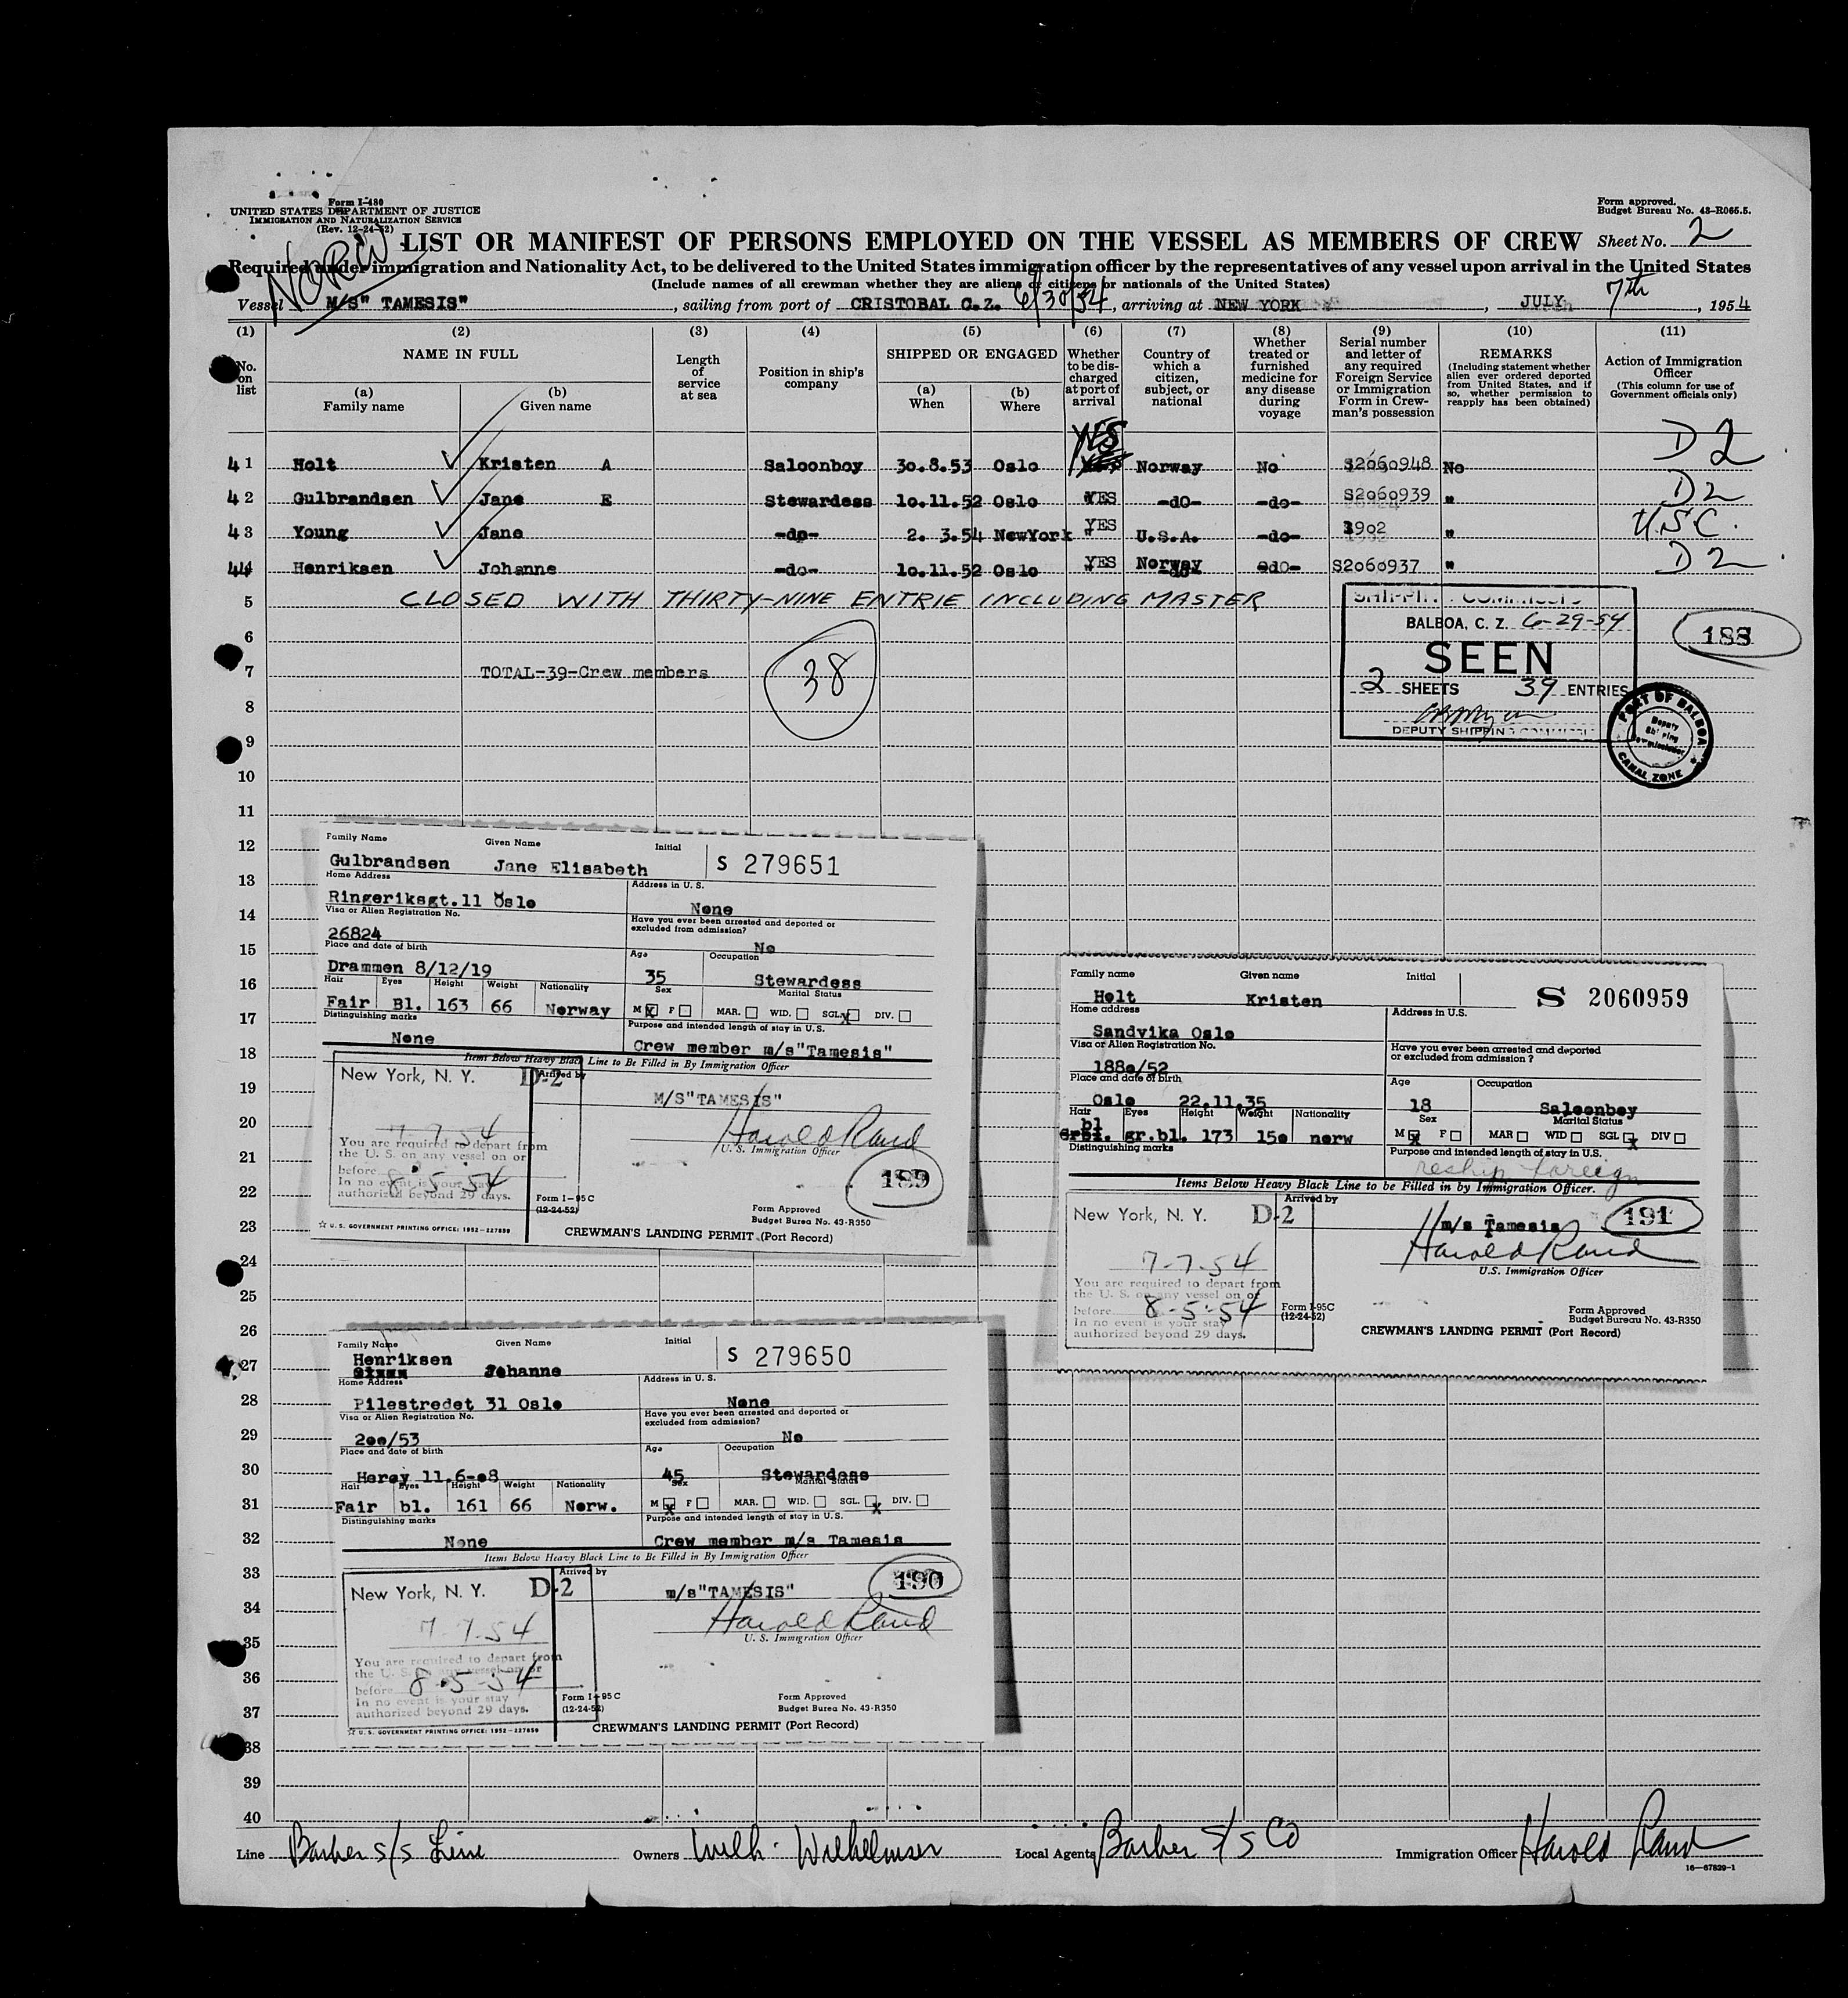 Form I-480
UNITED STATES DEPARTMENT OF JUSTICE
IMMIGRATION AND NATURALIZATION SERVICE
(Rev. 12-24-52)
Form approved.
Budget Bureau No. 43-R065.5.
NORW
LIST OR MANIFEST OF PERSONS EMPLOYED ON THE VESSEL AS MEMBERS OF CREW Sheet No. 2
Required under immigration and Nationality Act, to be delivered to the United States immigration officer by the representatives of any vessel upon arrival in the United States
(Include names of all crewman whether they are aliens or citizens or nationals of the United States)
Vessel M/S" TAMESIS" , sailing from port of CRISTOBAL C.Z. 6/30/54, arriving at NEW YORK , JULY 7th , 1954
(1) (2) (3) (4) (5) (6) (7) (8) (9) (10) (11)
No. on list
NAME IN FULL
(a) Family name
(b) Given name
Length of service at sea
Position in ship's company
SHIPPED OR ENGAGED
(a) When
(b) Where
Whether to be discharged at port of arrival
Country of which a citizen, subject, or national
Whether treated or furnished medicine for any disease during voyage
Serial number and letter of any required Foreign Service or Immigration Form in Crewman's possession
REMARKS
(Including statement whether alien ever ordered deported from United States, and if so, whether permission to reapply has been obtained)
Action of Immigration Officer
(This column for use of Government officials only)
41 Holt Kristen A Saloonboy 30.8.53 Oslo YES Norway No S2060948 No D2
42 Gulbrandsen Jane E Stewardess 10.11.52 Oslo YES -dO- -do- S2060939 " D2
43 Young Jane -do- 2. 3.54 NewYork YES U.S.A. -do- 3902 " U.S.C.
44 Henriksen Johanne -do- 10.11.52 Oslo YES Norway -do- S2060937 " D2
5 CLOSED WITH THIRTY-NINE ENTRIE INCLUDING MASTER
6
7 TOTAL-39-Crew members
38
8
9
10
11
BALBOA, C. Z. 6-29-54
SEEN
2 SHEETS 39 ENTRIES
DEPUTY SHIPPING
188
PORT OF BALBOA
Deputy Shipping Commissioner
CANAL ZONE
12
13
14
15
16
17
18
19
20
21
22
23
24
25
26
27
28
29
30
31
32
33
34
35
36
37
38
39
40
Family Name Given Name Initial
Gulbrandsen Jane Elisabeth S 279651
Home Address Address in U. S.
Ringeriksgt.11 Oslo None
Visa or Alien Registration No. Have you ever been arrested and deported or excluded from admission?
26824 No
Place and date of birth Age Occupation
Drammen 8/12/19 35 Stewardess
Hair Eyes Height Weight Nationality Sex Marital Status
Fair Bl. 163 66 Norway M X F MAR. WID. SGL. X DIV.
Distinguishing marks Purpose and intended length of stay in U.S.
None Crew member m/s"Tamesis"
Items Below Heavy Black Line to Be Filled in By Immigration Officer
New York, N. Y. D-2 Arrived by
M/S"TAMESIS"
7-7-54
Harold Rand
U. S. Immigration Officer
You are required to depart from the U. S. on any vessel on or before 8-5-54
In no event is your stay authorized beyond 29 days.
189
Form I-95 C
(12-24-52)
Form Approved
Budget Burea No. 43-R350
☆ U. S. GOVERNMENT PRINTING OFFICE: 1952-227859
CREWMAN'S LANDING PERMIT (Port Record)
Family name Given name Initial
Holt Kristen S 2060959
Home address Address in U.S.
Sandvika Oslo
Visa or Alien Registration No. Have you ever been arrested and deported or excluded from admission ?
188o/52
Place and date of birth Age Occupation
Oslo 22.11.35 18 Saloonboy
Hair Eyes Height Weight Nationality Sex Marital Status
bl gr.bl. 173 15o norw M X F MAR WID SGL X DIV
Distinguishing marks Purpose and intended length of stay in U.S.
reship foreign
Items Below Heavy Black Line to be Filled in by Immigration Officer.
New York, N. Y. D-2 Arrived by
m/s Tamesis 191
7-7-54
Harold Rand
U.S. Immigration Officer
You are required to depart from the U. S. on any vessel on or before 8-5-54
In no event is your stay authorized beyond 29 days.
Form I-95C
(12-24-52)
Form Approved
Budget Bureau No. 43-R350
CREWMAN'S LANDING PERMIT (Port Record)
Family Name Given Name Initial
Henriksen Johanne S 279650
Home Address Address in U. S.
Pilestredet 31 Oslo None
Visa or Alien Registration No. Have you ever been arrested and deported or excluded from admission?
2oo/53 No
Place and date of birth Age Occupation
Herøy 11.6-o8 45 Stewardess
Hair Eyes Height Weight Nationality Sex Marital Status
Fair bl. 161 66 Norw. M X F MAR. WID. SGL. X DIV.
Distinguishing marks Purpose and intended length of stay in U.S.
None Crew member m/s Tamesis
Items Below Heavy Black Line to Be Filled in By Immigration Officer
New York, N. Y. D-2 Arrived by
m/s"TAMESIS" 190
7-7-54
Harold Rand
U. S. Immigration Officer
You are required to depart from the U. S. on any vessel on or before 8-5-54
In no event is your stay authorized beyond 29 days.
Form I-95 C
(12-24-52)
Form Approved
Budget Burea No. 43-R350
☆ U. S. GOVERNMENT PRINTING OFFICE: 1952-227859
CREWMAN'S LANDING PERMIT (Port Record)
Line Barber S/S Line Owners Wilh. Wilhelmsen Local Agents Barber S/S Co Immigration Officer Harold Rand
16-67829-1